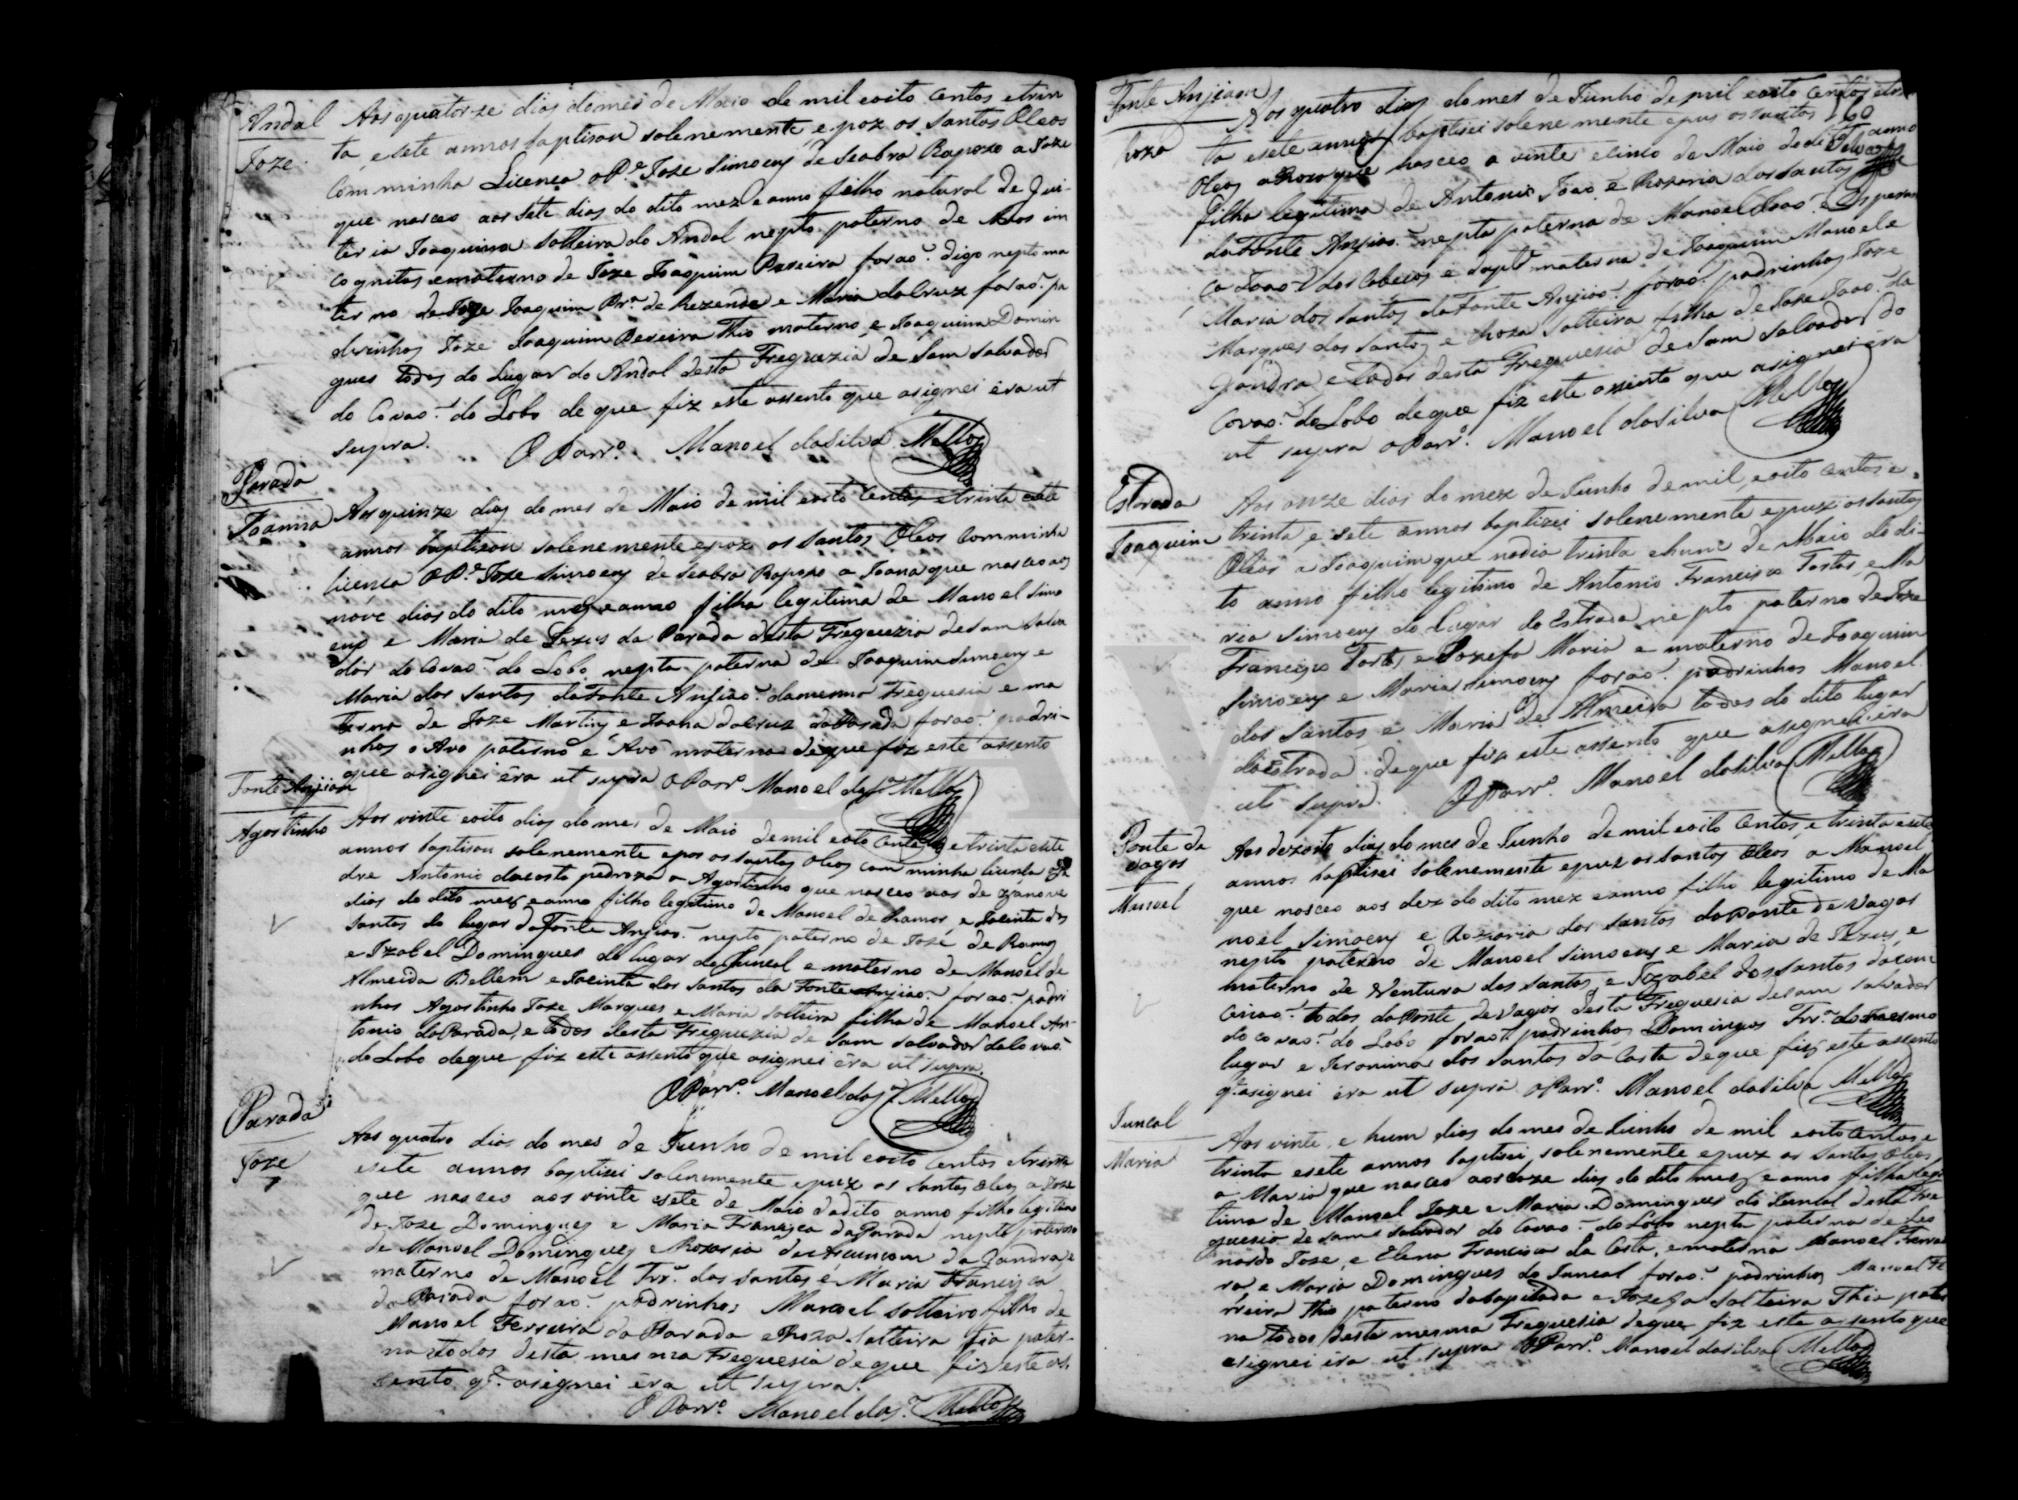 Andal
Joze
Aos quatorze dias do mes de Maio de mil eoito Centos etrin
ta, esete annos baptisou solenemente e poz os Santos Oleos
Com minha Licença o Pe. Joze Simoens de Seabra Rapozo a Joze
que nasceo aos sete dias do dito mez e anno filho natural de Qui-
teria Joaquina solteira do Andal nepto paterno de Avos in
cognitos e materno de Joze Joaquim Pereira foraõ digo nepto ma
terno de Joze Joaquim Pra. de Rezende e Maria da Cruz foraõ pa
drinhos Joze Joaquim Pereira Thio materno, e Joaquina Domin
gues todos do Lugar do Andal desta Freguezia de Sam Salvador
do Covaõ do Lobo de que fiz este assento que asignei éra ut
supra. O Parro. Manoel da Silva Mello
Parada
Joanna
Aos quinze dias do mes de Maio de mil eoito Centos etrinta esete
annos baptisou solenemente e poz os Santos Oleos Com minha
licença o Pe. Joze Simoens de Seabra Rapozo a Joana que nasceo aos
nove dias do dito mez e anno filha legitima de Manoel Simo
ens e Maria de Jezus da Parada desta Freguezia de Sam Salva
dor do Covaõ do Lobo nepta paterna de Joaquim Simoens e
Maria dos Santos da Fonte Anjiaõ da mesma Freguesia e ma
terna de Joze Martins e Joana da Cruz da Parada foraõ padri-
nhos o Avo paterno e Avó materna de que fiz este assento
que asignei éra ut supra O Parro. Manoel da Sa. Mello
Fonte Anjiam
Agostinho
Aos vinte eoito dias do mes de Maio de mil eoito Centos e trinta esete
annos baptisou solenemente e pos os santos Oleos com minha licença o Pa
dre Antonio da costa pedroza a Agostinho que nasceo aos de zanove
dias do dito mez e anno filho legitimo de Manoel de Ramos, e Jacinta dos
Santos do lugar da Fonte Anjiaõ nepto paterno de José de Ramos
e Izabel Domingues do lugar do Juncal e materno de Manoel de
Almeida Bellem e Jacinta dos Santos da Fonte Anjiaõ foraõ padri
nhos Agostinho Joze Marques e Maria solteira filha de Manoel An-
tonio da Parada, e todos desta Freguezia de Sam Salvador do Covaõ
do Lobo de que fiz este assento que asignei éra ut supra.
O Parro. Manoel da Sa. Mello
Parada
Joze
Aos quatro dias do mes de Junho de mil eoito Centos etrinta
esete annos baptisei solenemente e puz os Santos Oleos a Joze
que nasceo aos vinte esete de Maio do dito anno filho legitimo
de Joze Domingues e Maria Francisca da Parada nepto paterno
de Manoel Domingues e Rozaria da Asumcam da Gandra, e
materno de Manoel Frra. dos Santos e Maria Francisca
da Parada foraõ padrinhos Manoel solteiro filho de
Manoel Ferreira da Parada e Roza solteira tia pater-
na todos desta mesma Freguesia de que fiz este as
sento q. asegnei éra ut supra.
O Parro. Manoel da Sa. Mello
Fonte Anjiam
Roza
160
Aos quatro dias do mes de Junho de mil eoito Centos etrin
ta esete annos baptisei solenemente e puz os santos
Oleos a Roza que nasceo a vinte ecinco de Maio do dito anno
filha legitima de Antonio Joaõ e Rozaria dos Santos
da Fonte Anjiaõ nepta paterna de Manoel Joaõ
e materna de Joaquim Manoel e
Maria dos Santos da Fonte Anjiaõ foraõ padrinhos Joze
Marques dos Santos e Roza solteira filha de Joze Joaõ da
Gandra, e todos desta Freguesia de Sam Salvador do
Covaõ do Lobo de que fiz este assento que asignei éra
ut supra o Parro. Manoel da Silva Mello
Estrada
Joaquim
Aos onze dias do mez de Junho de mil eoito Centos e
trinta, e sete annos baptizei solenemente e puz os santos
Oleos a Joaquim que no dia trinta ehum de Maio do di-
to anno filho legitimo de Antonio Francisco Tostos, e Ma
ria Simoens do Lugar da Estrada nepto paterno de Joze
Francisco Tostos e Jozefa Maria e materno de Joaquim
Simoens e Maria Simoens foraõ padrinhos Manoel
dos Santos e Maria de Almeida todos do dito lugar
da Estrada de que fiz este assento que asignei éra
ut supra. O Parro. Manoel da Silva Mello
Ponte de
Vagos
Manoel
Aos dezoito dias do mes de Junho de mil eoito Centos e trinta esete
annos baptisei solenemente e puz os Santos Oleos a Manoel
que nasceo aos dez do dito mez e anno filho legitimo de Ma
noel Simoens e Rozaria dos Santos da Ponte de Vagos
nepto paterno de Manoel Simoens e Maria de Jezus, e
materno de Ventura dos Santos e Izabel dos Santos da Con
ceiçaõ todos da Ponte de Vagos desta Freguesia de Sam Salvador
do Covaõ do Lobo foraõ padrinhos Domingos Frra. do mesmo
lugar e Jeronima dos Santos da Costa de que fiz este assento
q. asignei éra ut supra o Parro. Manoel da Silva Mello
Juncal
Maria
Aos vinte, e hum dias do mes de Junho de mil eoito Centos e
trinta esete annos baptisei solenemente e puz os Santos Oleos
a Maria que nasceo aos doze dias do dito mez e anno filha legi
tima de Manoel Joze e Maria Domingues do Juncal desta Fre
guesia de Sam Salvador do Covaõ do Lobo nepta paterna de Leo
nardo Jose, e Elena Francisca da Costa, e materna Manoel Ferrei
ra e Maria Domingues do Juncal foraõ padrinhos Manoel Fe
rreira Thio paterno da baptizada e Jozefa solteira Thia pater
na todos desta mesma Freguesia de que fiz este asento que
asignei éra ut supra O Parro. Manoel da Silva Mello